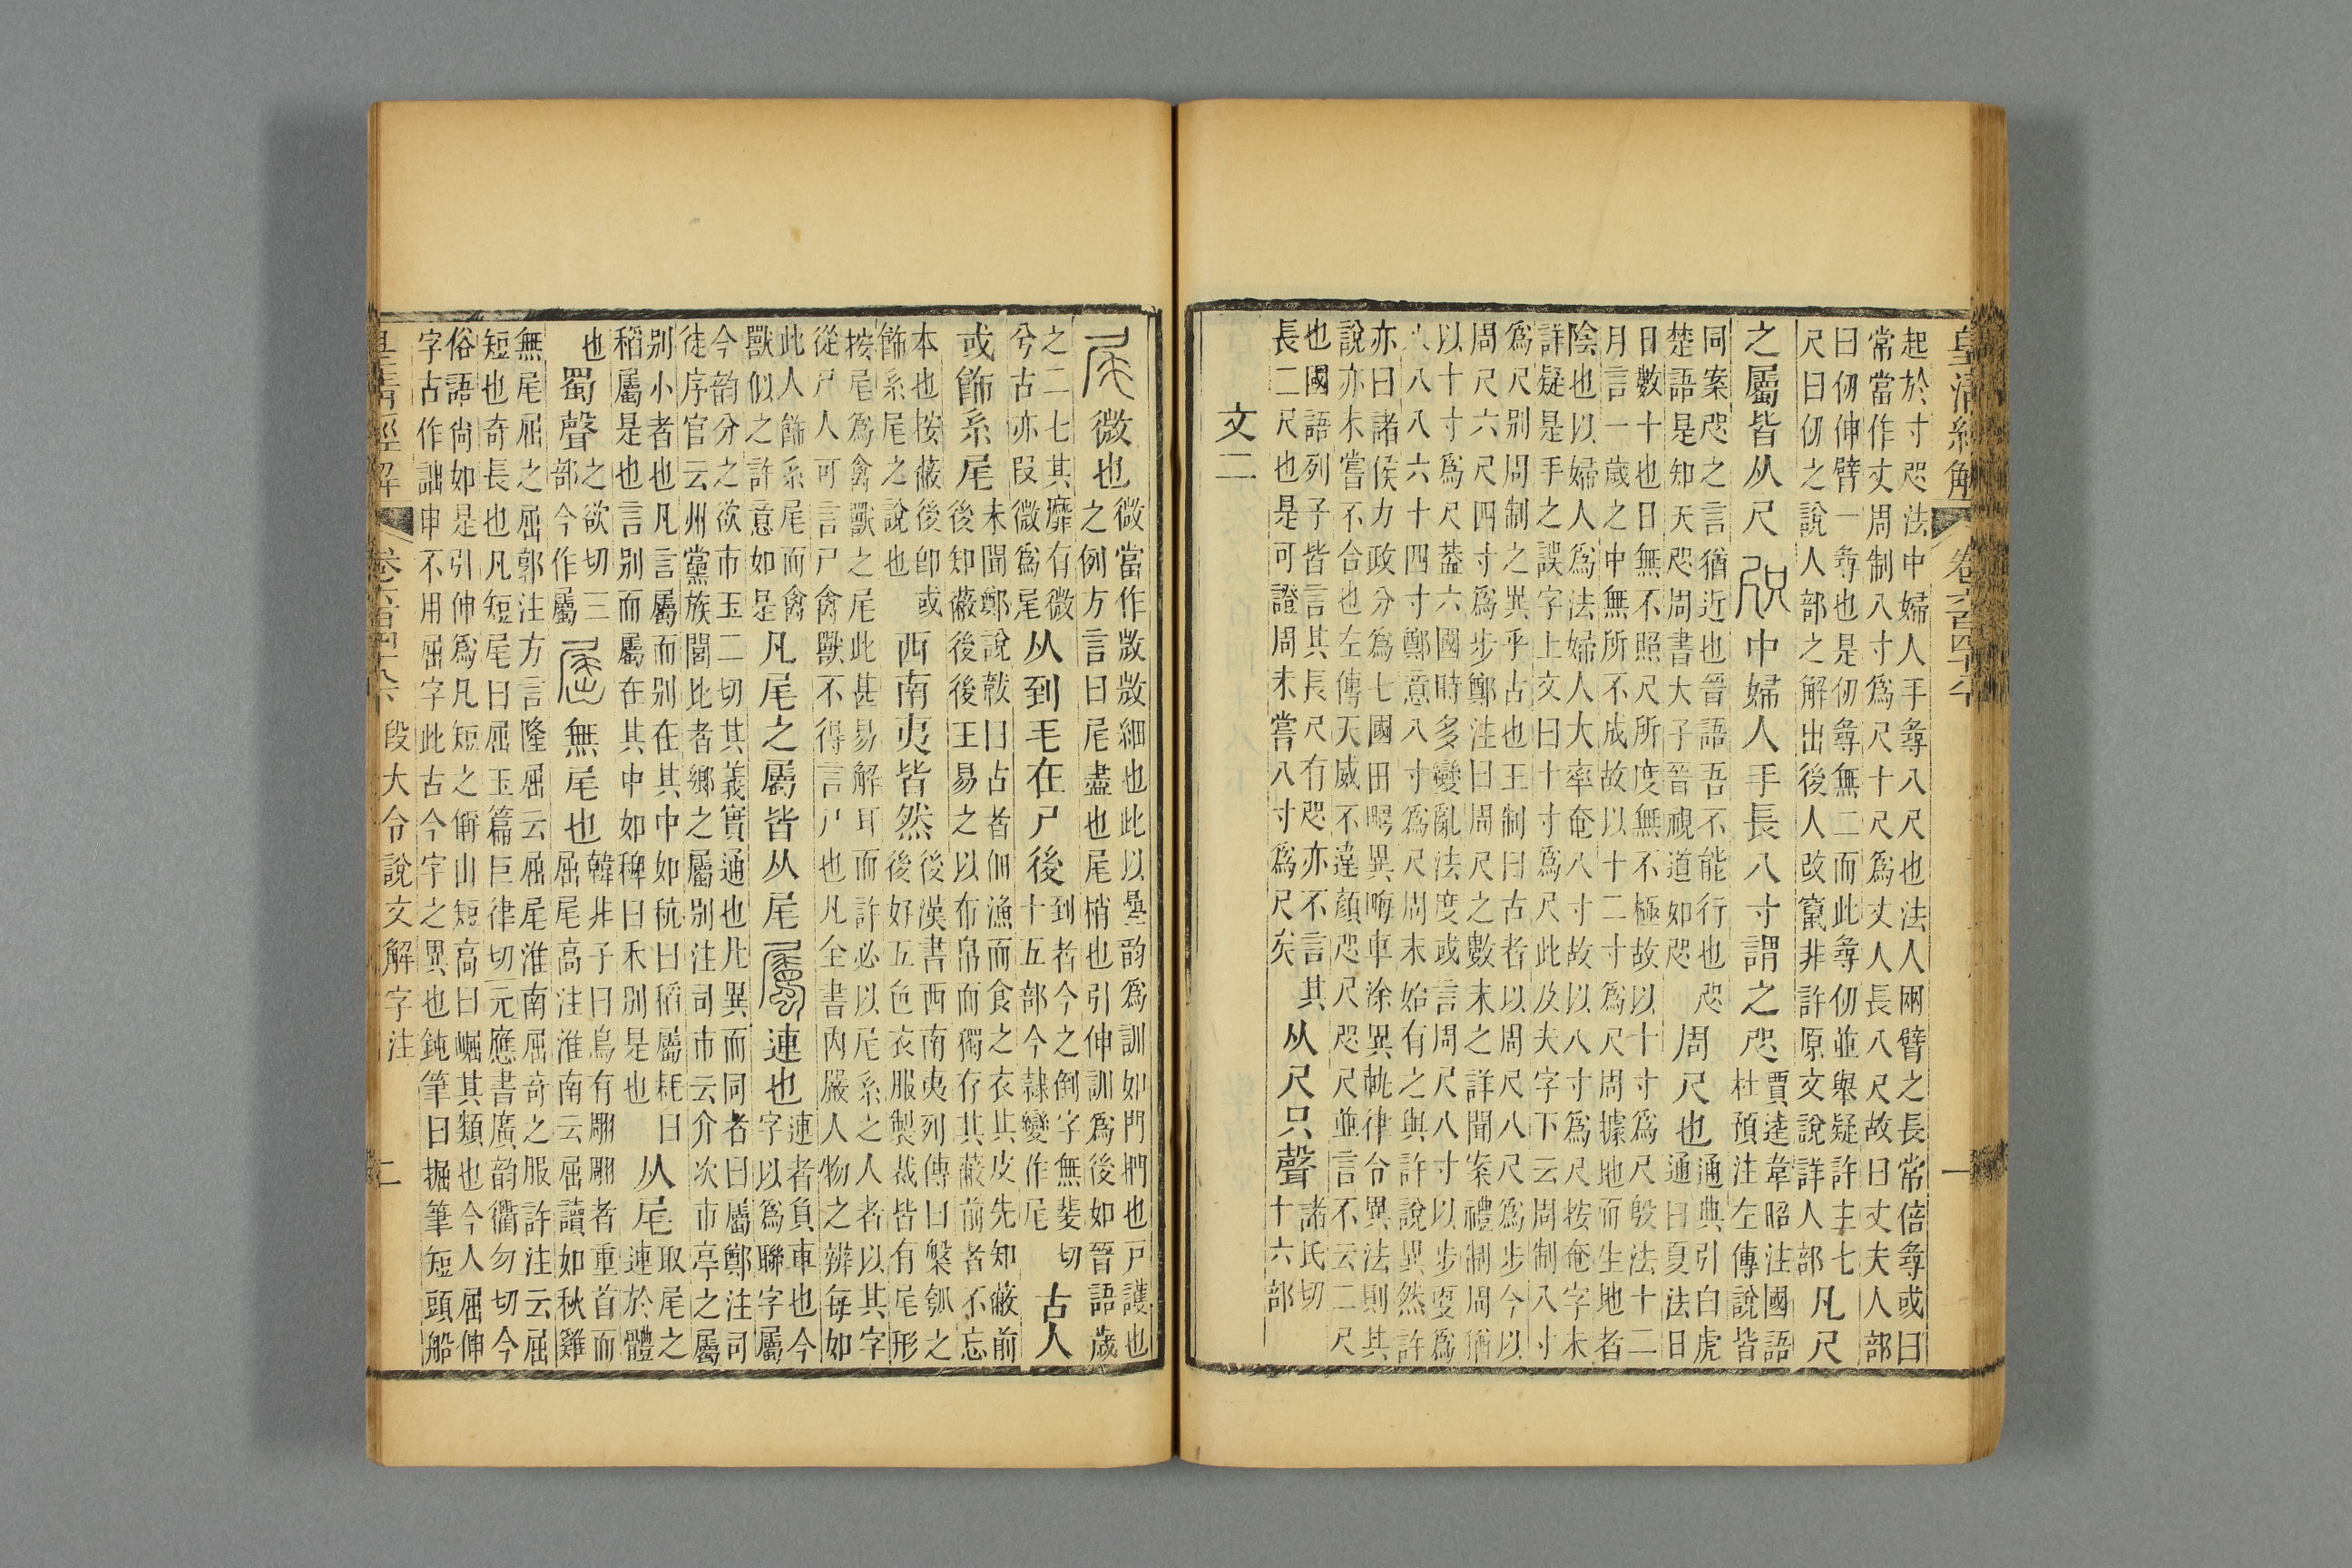 皇清經解　卷六百四十八　一
起於寸咫法中婦人手㝷八尺也法人兩臂之長常倍㝷或曰
常當作丈周制八寸爲尺十尺爲丈人長八尺故曰丈夫人部
曰仞伸臂一㝷也是仞㝷無二而此㝷仞並舉疑許主七
尺曰仞之說人部之解出後人攺竄非許原文說詳人部
凡尺
之屬皆从尺　咫　中婦人手長八寸謂之咫
賈逵韋昭注國語
杜預注左傳說皆
同案咫之言猶近也晉語吾不能行也咫
楚語是知天咫周書大子晉視道如咫
周尺也
通典引白虎
通曰夏法日
日數十也日無不照尺所度無不極故以十寸爲尺殷法十二
月言一歲之中無所不成故以十二寸爲尺周據地而生地者
陰也以婦人爲法婦人大率奄八寸故以八寸爲尺按奄字未
詳疑是手之誤字上文曰十寸爲尺此及夫字下云周制八寸
爲尺别周制之異乎古也王制曰古者以周尺八尺爲步今以
周尺六尺四寸爲步鄭注曰周尺之數未之詳聞案禮制周猶
以十寸爲尺葢六國時多變亂法度或言周尺八寸以步更爲
八八八六十四寸鄭意八寸爲尺周末始有之與許說異然許
亦曰諸侯力政分爲七國田疇異畮車涂異軌律令異法則其
說亦未嘗不合也左傳天威不違顏咫尺咫尺並言不云二尺
也國語列子皆言其長尺有咫亦不言其
長二尺也是可證周未嘗八寸爲尺矣
从尺只聲
諸氏切
十六部
文二
尾　微也
微當作𢼸𢼸細也此以疉韵爲訓如門捫也戸護也
之例方言曰尾盡也尾梢也引伸訓爲後如晉語歲
之二七其靡有微
兮古亦叚微爲尾
从到毛在尸後
到者今之倒字無斐切
十五部今隷變作尾
古人
或飾系尾
未聞鄭說韍曰古者佃漁而食之衣其皮先知蔽前
後知蔽後後王易之以布帛而獨存其蔽前者不忘
本也按蔽後卽或
飾系尾之說也
西南夷皆然
後漢書西南夷列傳曰槃瓠之
後好五色衣服製裁皆有尾形
按尾爲禽獸之尾此甚易解耳而許必以尾系之人者以其字
從尸人可言尸禽獸不得言尸也凡全書內嚴人物之辨每如
此人飾系尾而禽
獸似之許意如是
凡尾之屬皆从尾　屬　連也
連者負車也今
字以爲聯字屬
今韵分之欲市玉二切其義實通也凡異而同者曰屬鄭注司
徒序官云州黨族閭比者鄉之屬别注司市云介次市亭之屬
别小者也凡言屬而别在其中如秔曰稻屬秏曰
稻屬是也言别而屬在其中如稗曰禾别是也
从尾
取尾之
連於體
也
蜀聲
之欲切三
部今作屬
屈　無尾也
韓非子曰鳥有翢翢者重首而
屈尾高注淮南云屈讀如秋雞
無尾屈之屈郭注方言隆屈云屈尾淮南屈奇之服許注云屈
短也奇長也凡短尾曰屈玉篇巨律切元應書廣韵衢勿切今
俗語尙如是引伸爲凡短之偁山短高曰崛其類也今人屈伸
字古作詘申不用屈字此古今字之異也鈍筆曰掘筆短頭船
皇清經解　卷六百四十八　段大令說文解字注　二